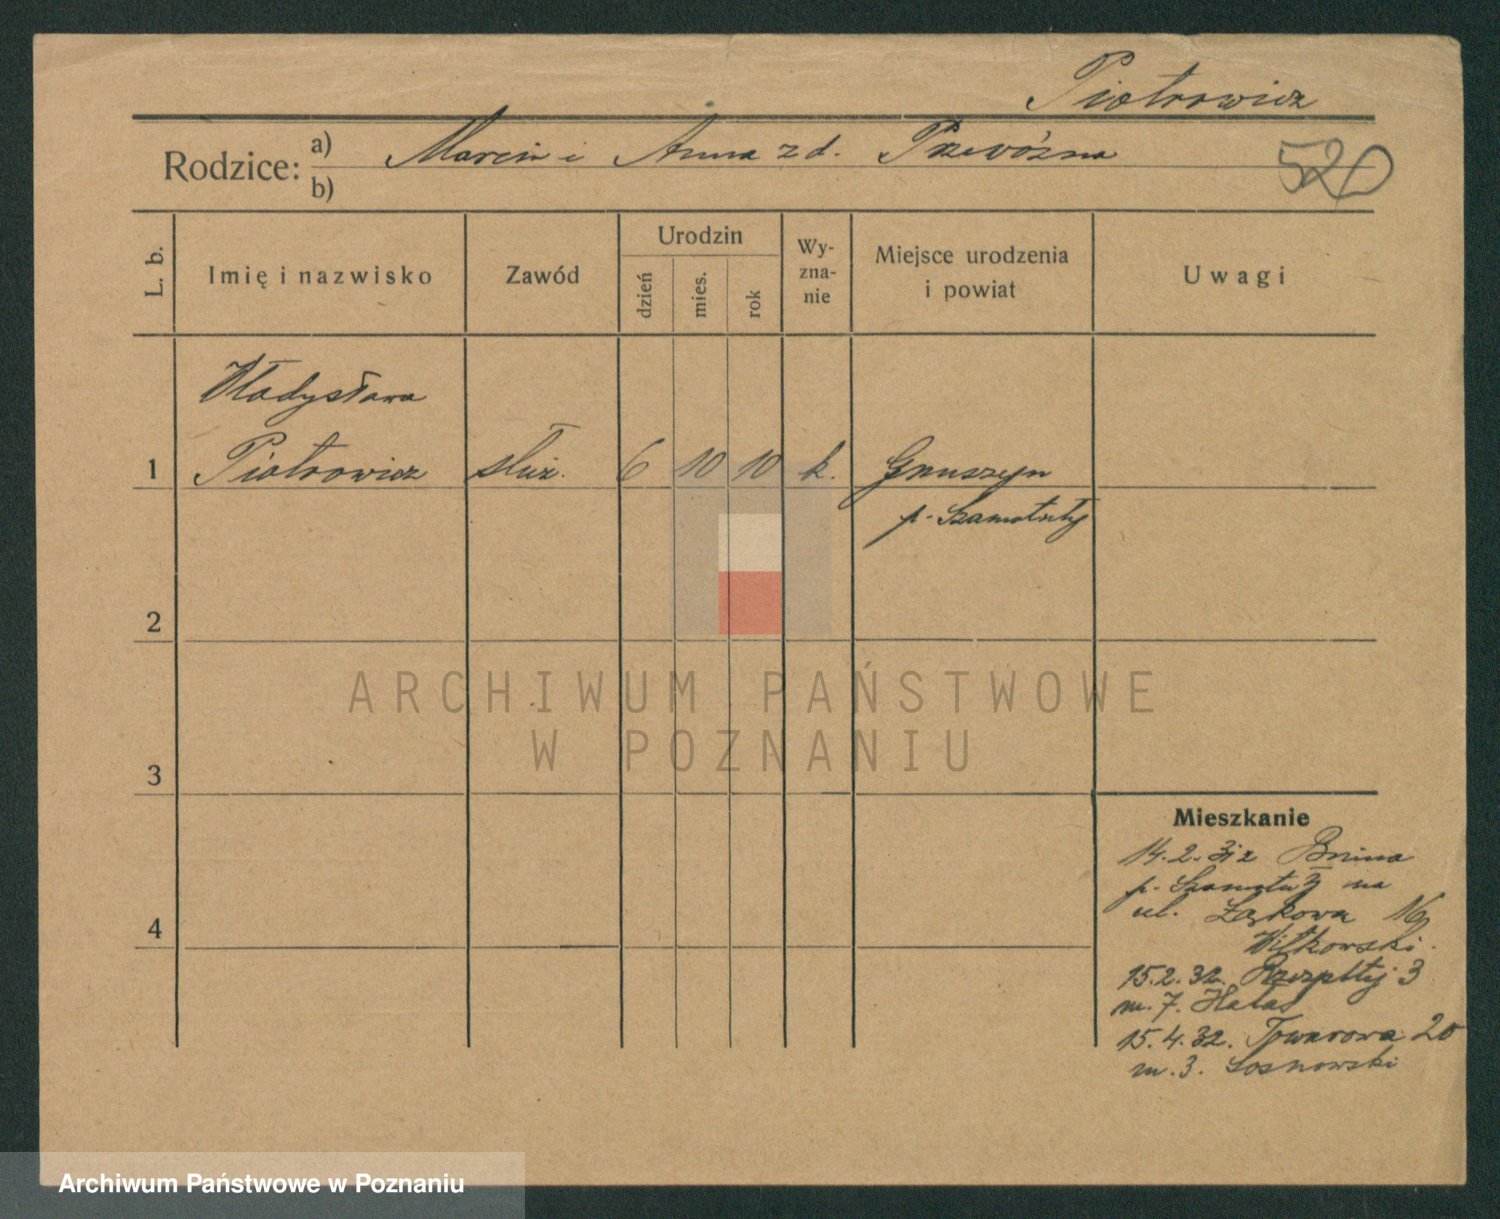 Piotrowicz
Rodzice: a) Marcin i Anna z d. Przewóżna
b)
520
L. b.
Imię i nazwisko
Zawód
Urodzin
dzień
mies.
rok
Wy-
zna-
nie
Miejsce urodzenia
i powiat
Uwagi
Władysława
1 Piotrowicz służ. 6 10 10 k. Gnuszyn
p. Szamotuły
2
ARCHIWUM PAŃSTWOWE
W POZNANIU
3
Mieszkanie
14.2.31 z Bnina
p. Szamotuły na
ul. Łąkowa 16
4
Witkowski.
15.2.32. Rzeczpltej 3
m. 7. Hałas
15.4.32. Towarowa 20
m. 3. Sosnowski
Archiwum Państwowe w Poznaniu